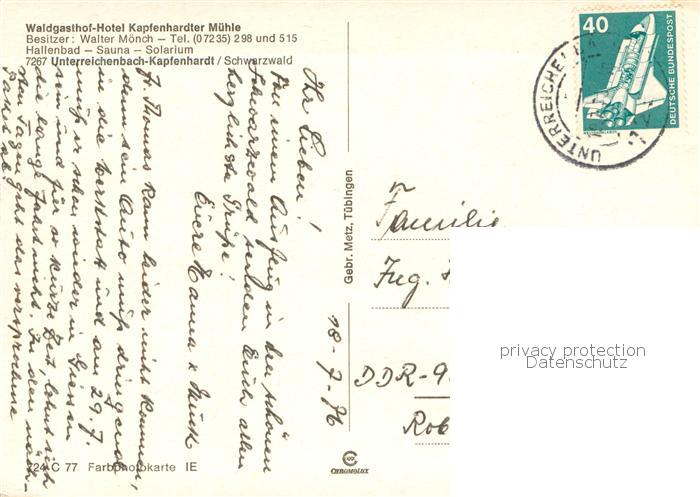 Waldgasthof-Hotel Kapfenhardter Mühle
Besitzer: Walter Mönch – Tel. (07235) 298 und 515
Hallenbad – Sauna – Solarium
7267 Unterreichenbach-Kapfenhardt / Schwarzwald
Ihr Lieben!
Von einem Ausflug in den schönen
Schwarzwald senden Euch allen
herzlichste Grüße!
Eure Hanna &
J. Thomas kann leider nicht kommen,
denn sein Auto muß dringend
in die Werkstatt und am 29.7.
muß er schon wieder in Giessen
sein und für so kurze Zeit lohnt sich
die lange Fahrt nicht. In den näch-
sten Tagen geht das versprochene
Paket ab.
724 C 77 Farbphotokarte IE
Gebr. Metz, Tübingen
18-7-76
CHROMOLUX
40
DEUTSCHE BUNDESPOST
UNTERREICHE
Familie
Ing.
DDR-9
Rob
privacy protection
Datenschutz